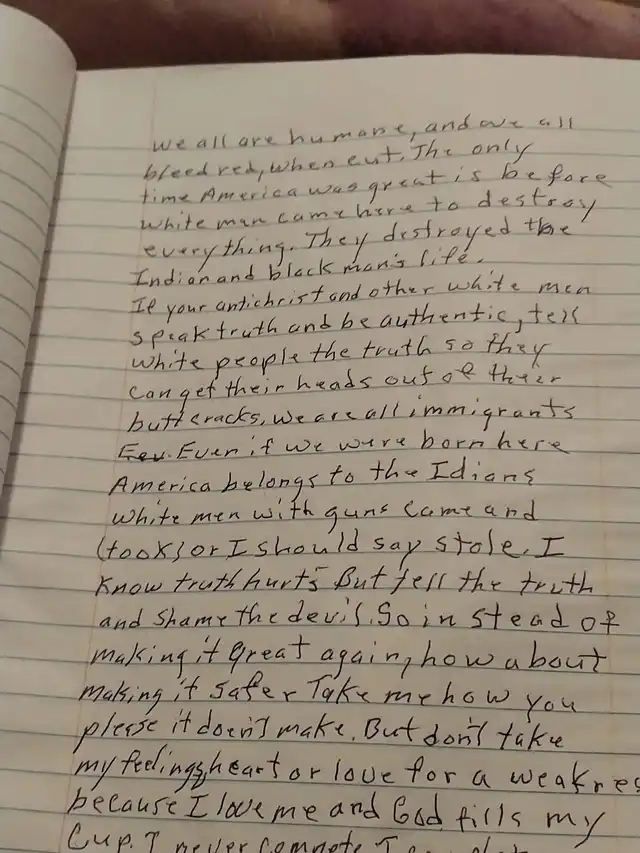 we all are humane, and we all
bleed red, when cut. The only
time America was great is before
white man came here to destroy
everything. They destroyed the
Indian and black man's life.
If your antichrist and other white men
speak truth and be authentic, tell
white people the truth so they
can get their heads out of their
buttcracks, we are all immigrants
Eev. Even if we were born here
America belongs to the Idians
white men with guns came and
(took) or I should say stole. I
know truth hurts But tell the truth
and shame the devil. So in stead of
making it great again, how about
making it safer Take me how you
please it doen't make. But don't take
my feelings, heart or love for a weaknes
because I love me and God fills my
Cup. I never compete I